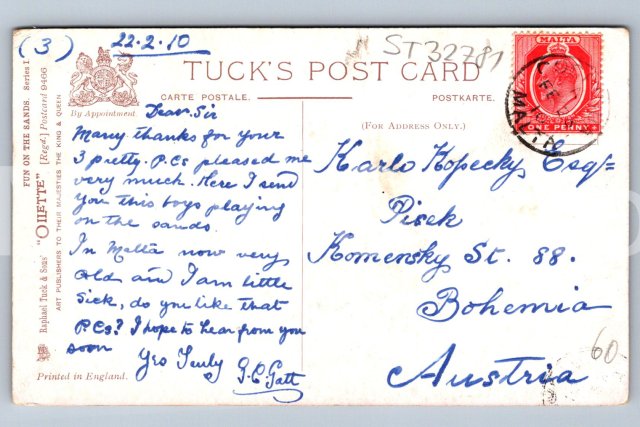 (3) 22.2.10
ST32781
TUCK'S POST CARD
CARTE POSTALE.
POSTKARTE.
By Appointment.
(FOR ADDRESS ONLY.)
FUN ON THE SANDS. Series I
"OILETTE" [Regd.] Postcard 9466
Raphael Tuck & Sons'
ART PUBLISHERS TO THEIR MAJESTIES THE KING & QUEEN
Dear Sir
Many thanks for your
3 pretty P.Cs pleased me
very much. Here I send
you this boys playing
on the sands.
In Malta now very
cold and I am little
sick, do you like that
P.Cs? I hope to hear from you
soon
Yrs Truly
G.C. Gatt
Printed in England.
MALTA
ONE PENNY
MALTA
Karlo Kopecky Esq/=
Pisek
Komensky St. 88.
Bohemia
Austria
60